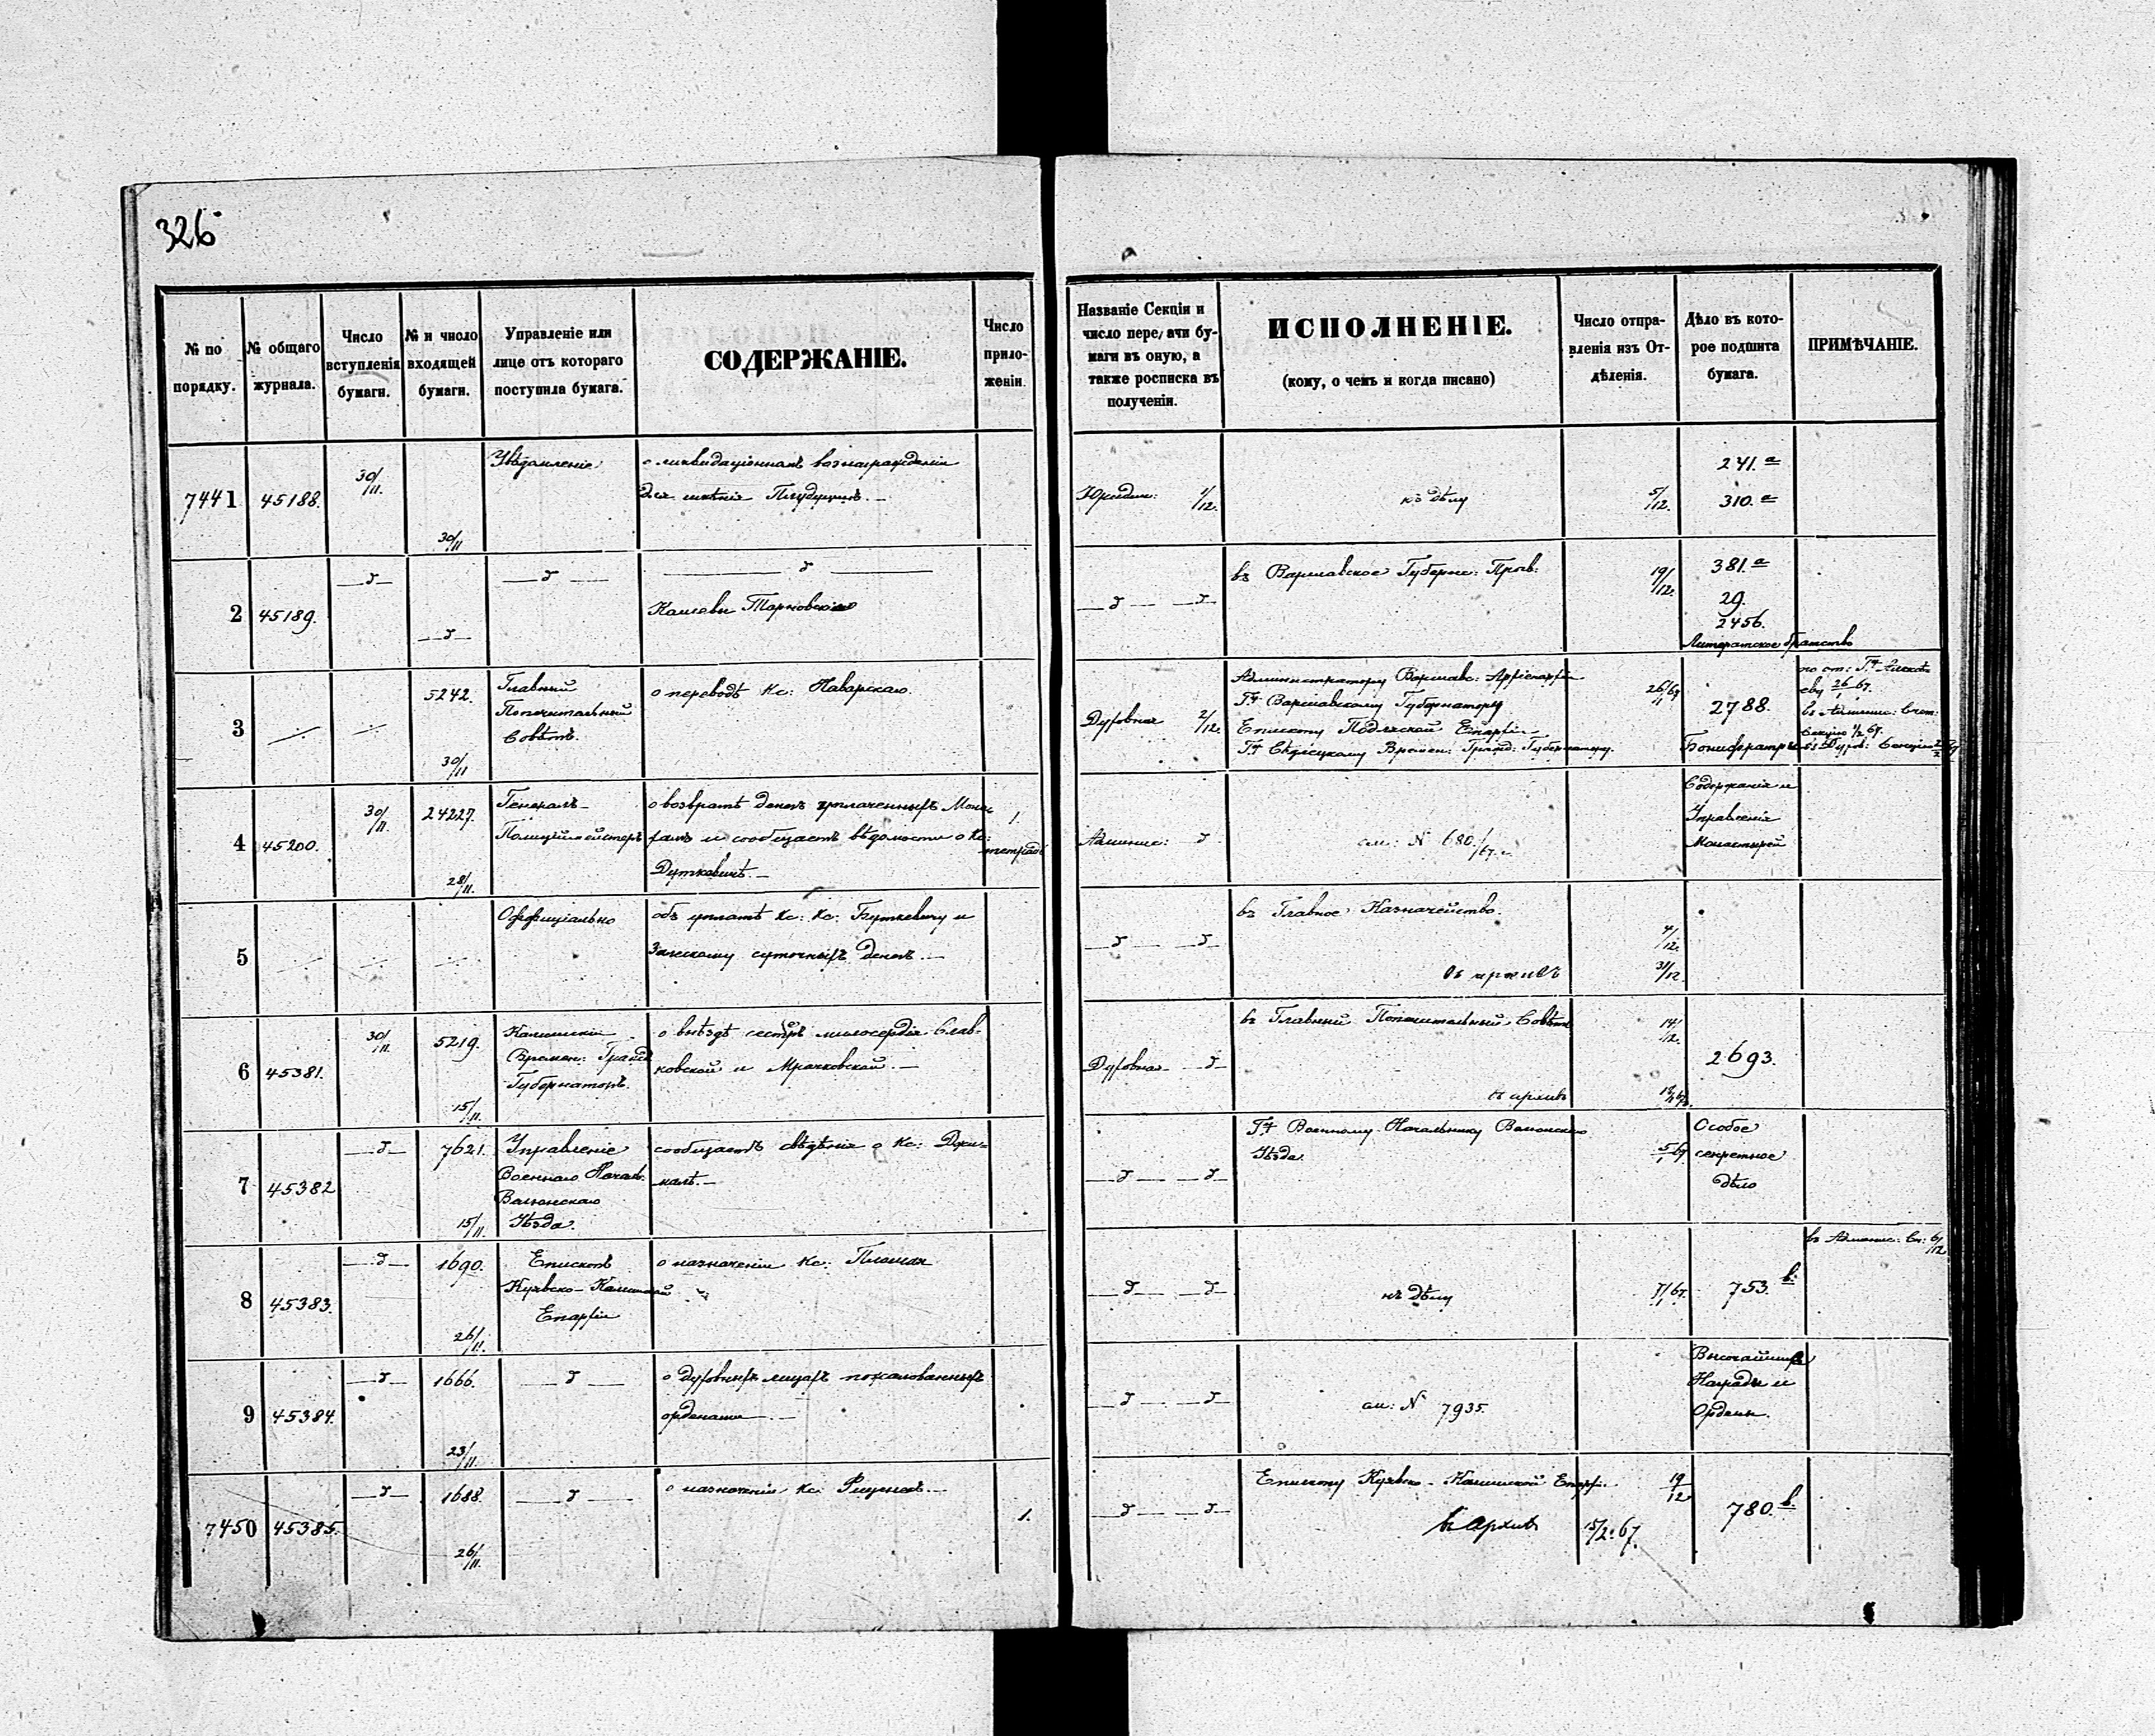 326
№ по порядку.
№ общаго журнала.
Число вступленія бумаги.
№ и число входящей бумаги.
Управленіе или лице отъ котораго поступила бумага.
СОДЕРЖАНІЕ.
Число приложеніи.
Названіе Секціи и число передачи бумаги въ оную, а также росписка въ полученіи.
ИСПОЛНЕНІЕ.
(кому, о чемъ и когда писано)
Число отправленія изъ Отдѣленія.
Дѣло въ которое подшита бумага.
ПРИМѢЧАНІЕ.
7441 45188. 30/11. 30/11
Увѣдомленіе
о ликвидаціонномъ вознагражденіи
для имѣнія
1/12.
къ дѣлу
5/12.
241. а
310. а
2 45189.
въ Варшавское Губернс: Прав:
19/12.
381. а
29.
2456.
Литератское братство
3 5242. 30/11
Главный
Попечительный
Совѣтъ.
о переводѣ Кс: Наварскаго.
Духовная 2/12.
Администратору Варшавс: Архіепархіи
Гну Варшавскому Губернатору
Епископу Подляской Епархіи
Гну Сѣдлецкому Времен: Гражд: Губернатору.
26/67 1
2788.
Бонифратры
4 45200. 30/11. 24227. 28/11.
Генералъ-
Полиціймейстеръ
о возвратѣ денегъ уплаченныхъ Мона-
хамъ и сообщаетъ вѣдомости о Кс:
Дутковичѣ.
1.
тетрадь
Админис:
см: № 680/67.
Содержаніе и
Управленіе
Монастырей
5
Оффиціально
объ уплатѣ Кс: Кс: Буткевичу и
Залескому суточныхъ денегъ.
въ Главное Казначейство.
4/12.
въ архивъ
31/12.
6 45381. 30/11. 5219. 15/11.
Калишскій
Времен: Гражд
Губернаторъ.
о выѣздѣ сестръ милосердія Слав-
ковской и Мрочковской.
Духовная
въ Главный Попечительный Совѣтъ
14/12.
въ архивъ
2693.
7 45382 7621. 15/11.
Управленіе
Военнаго Начал:
Велюнскаго
Уѣзда.
сообщаетъ свѣдѣнія о Кс:
Гну Военному Начальнику Велюнскаго
Уѣзда.
5/67 1
Особое
секретное
дѣло
8 45383. 1690. 26/11.
Епископъ
Куявско-Калишской
Епархіи
о назначеніи Кс:
къ дѣлу
7/67. 1
753. b.
въ Админис: Ск: 6/12.
9 45384. 1666. 23/11.
о духовныхъ лицахъ пожалованныхъ
орденами.
см: № 7935.
Высочайшія
Награды и
Ордены.
7450 45385. 1688. 26/11.
о назначеніи Кс:
1.
Епископу Куявско-Калишской Епарх:
19/12
въ Архивъ
15/2. 67.
780. b.